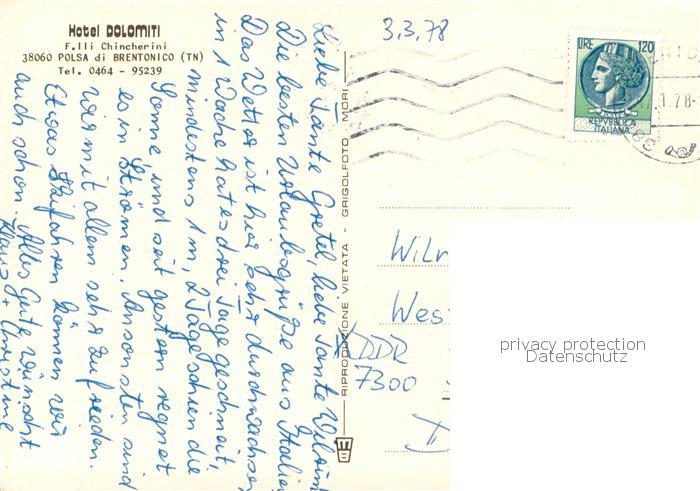 Hotel DOLOMITI
F.lli Chincherini
38060 POLSA di BRENTONICO (TN)
Tel. 0464 - 95239
3.3.78
LIRE 120
REPVBBLICA
ITALIANA
Liebe Tante Gretel, liebe Tante
Die besten Urlaubsgrüße aus Italien
Das Wetter ist hier sehr durchwachsen
in 1 Woche hat es drei Tage geschneit,
mindestens 1 m, 2 Tage schien die
Sonne und seit gestern regnet
es in Strömen. Ansonsten sind
wir mit allem sehr zufrieden.
Etwas Skifahren können wir
auch schon. Alles Gute wünscht
Klaus + Christine
RIPRODUZIONE VIETATA - GRIGOLFOTO - MORI
Wes
DDR
7300
privacy protection
Datenschutz